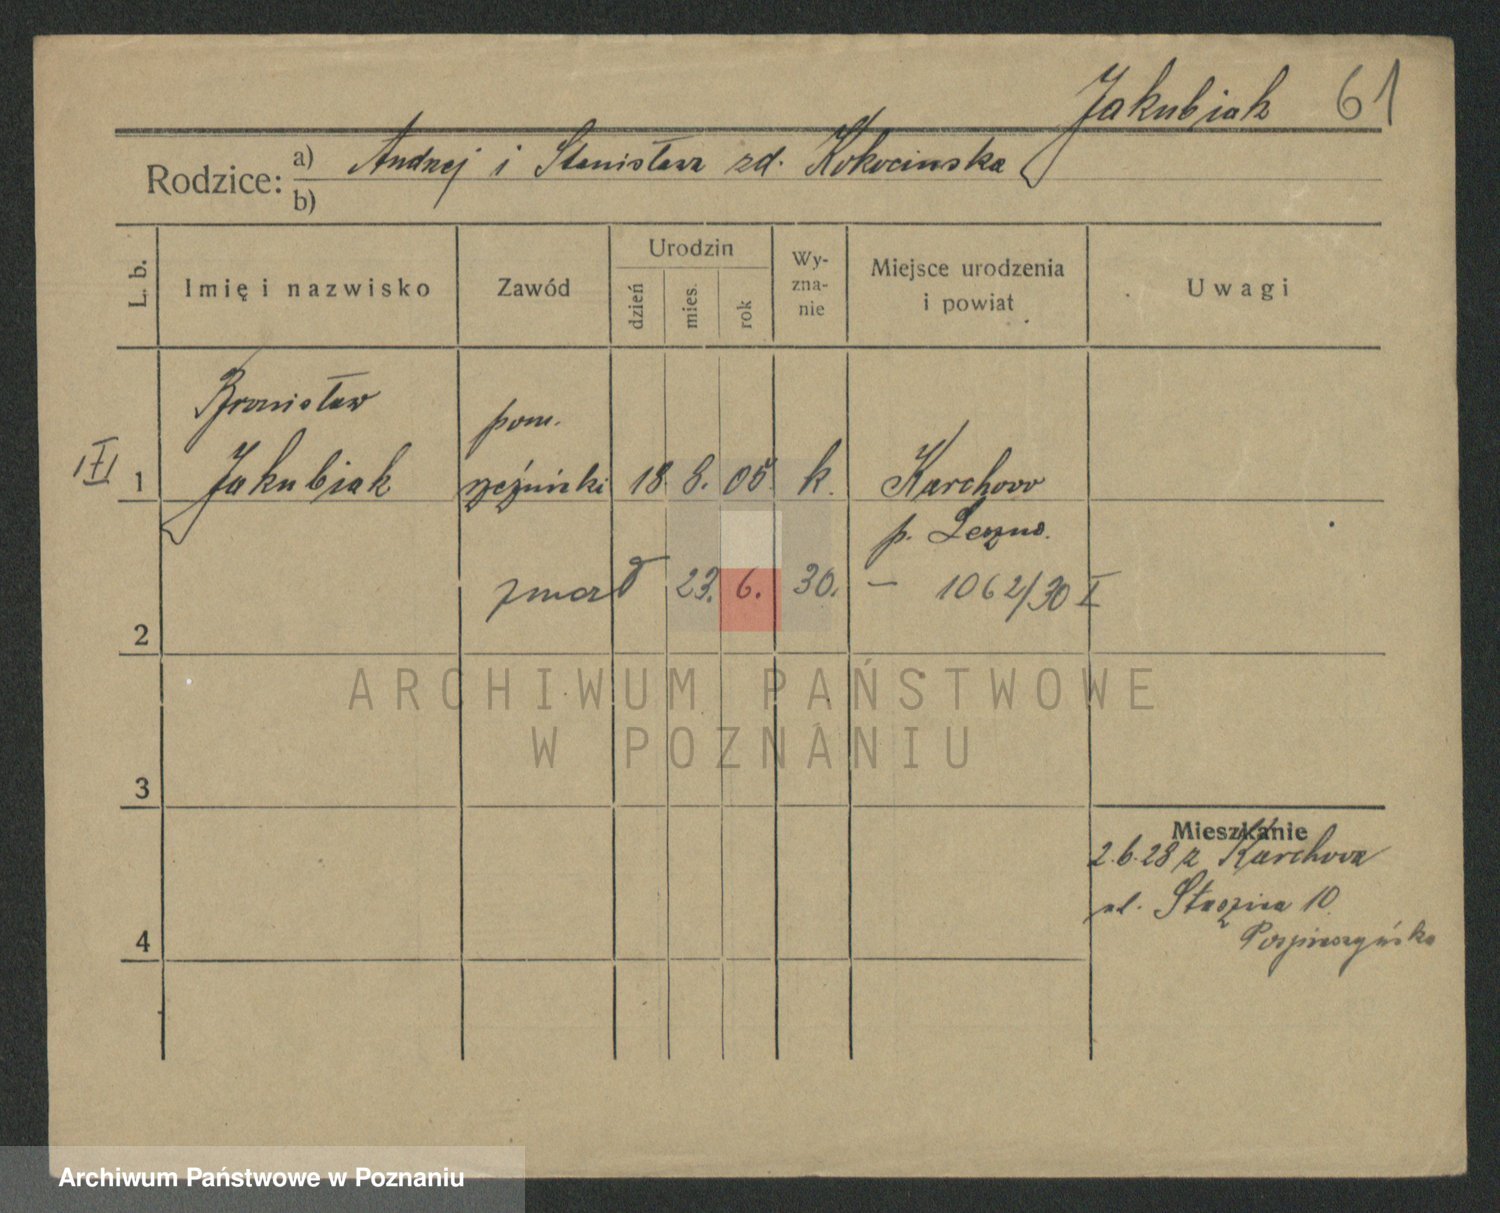 Jakubiak 61
Rodzice: a) Andrzej i Stanisława zd. Kokocinska
b)
L. b. Imię i nazwisko Zawód Urodzin dzień mies. rok Wy-zna-nie Miejsce urodzenia i powiat Uwagi
Bronisław pom.
1 Jakubiak rzeźnicki 18. 8. 05 k. Karchowo
p. Leszno.
zmarł 23. 6. 30. — 1062/30 I
2
ARCHIWUM PAŃSTWOWE
W POZNANIU
3
Mieszkanie
2.6.28 z Karchowa
ul. Staszica 10
4
Archiwum Państwowe w Poznaniu